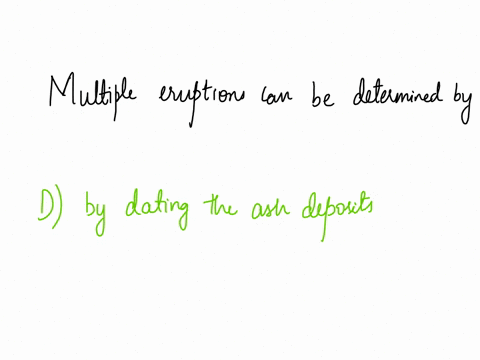 Multiple eruptions can be determined by
D) by dating the ash deposits